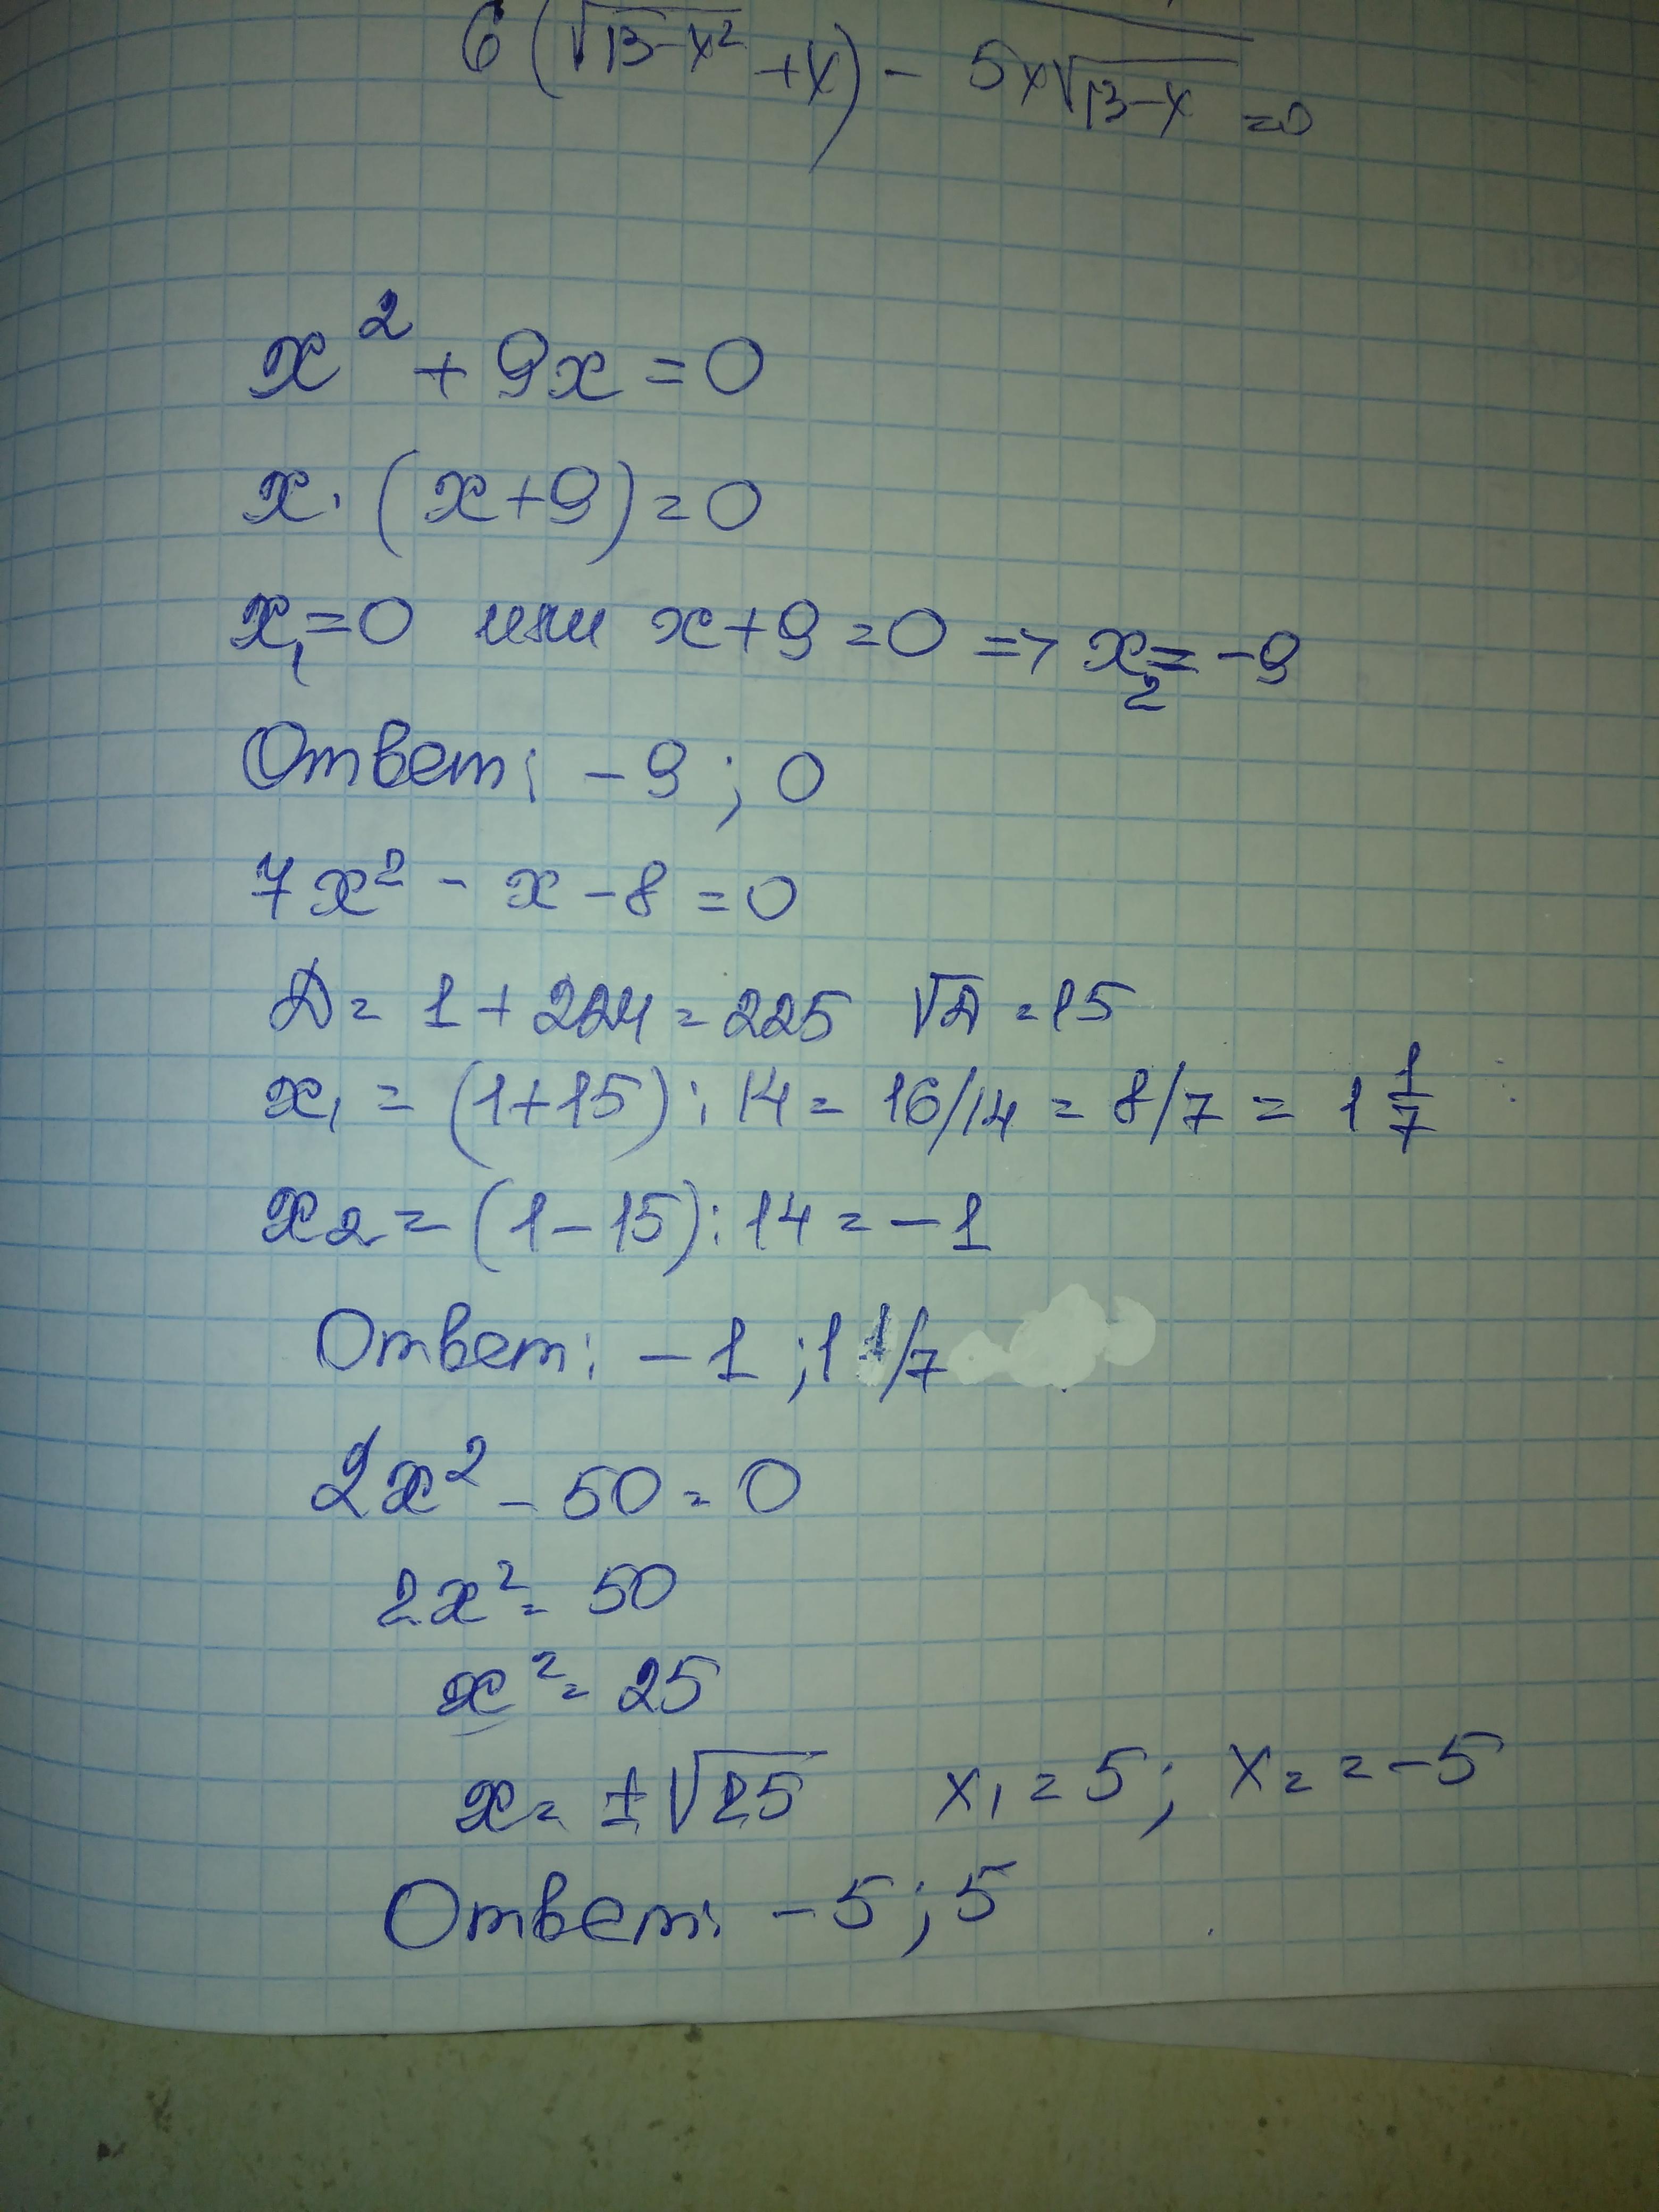 6(√13-x² +x) - 5x√13-x =0
x² + 9x = 0
x · (x+9) = 0
x₁=0 или x+9=0 => x₂= -9
Ответ: -9 ; 0
7x² - x - 8 = 0
Д = 1 + 224 = 225 √Д = 15
x₁ = (1+15) : 14 = 16/14 = 8/7 = 1 1/7
x₂ = (1-15) : 14 = -1
Ответ: -1 ; 1 1/7
2x² - 50 = 0
2x² = 50
x² = 25
x = ±√25 x₁ = 5; x₂ = -5
Ответ: -5; 5